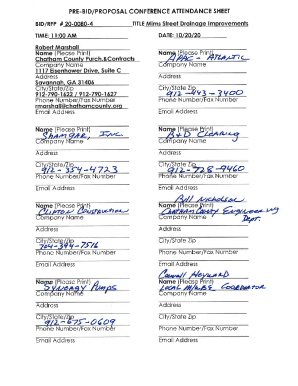 PRE-BID/PROPOSAL CONFERENCE ATTENDANCE SHEET
BID/RFP # 20-0080-4
TITLE Mims Street Drainage Improvements
TIME: 11:00 AM
DATE: 10/20/20
Robert Marshall
Name (Please Print)
Chatham County Purch.&Contracts
Company Name
1117 Eisenhower Drive, Suite C
Address
Savannah, GA 31406
City/State/Zip
912-790-1622 / 912-790-1627
Phone Number/Fax Number
rmarshall@chathamcounty.org
Email Address
Name (Please Print)
APAC - ATLANTIC
Company Name
Address
City/State/Zip
912-443-3400
Phone Number/Fax Number
Email Address
Name (Please Print)
SHAMGAR, INC
Company Name
Address
City/State/Zip
912-354-4723
Phone Number/Fax Number
Email Address
Name (Please Print)
B&D CLEARING
Company Name
Address
City/State/Zip
912-728-9460
Phone Number/Fax Number
Email Address
Name (Please Print)
CLIFTON CONSTRUCTION
Company Name
Address
City/State/Zip
704-394-7516
Phone Number/Fax Number
Email Address
Bill Nicholson
Name (Please Print)
CHATHAM COUNTY ENGINEERING
DEPT.
Company Name
Address
City/State Zip
Phone Number/Fax Number
Email Address
Name (Please Print)
SYNERGY PUMPS
Company Name
Address
City/State/Zip
912-675-0609
Phone Number/Fax Number
Email Address
HOWARD
Name (Please Print)
LOCAL M/WBE COORDINATOR
Company Name
Address
City/State/Zip
Phone Number/Fax Number
Email Address